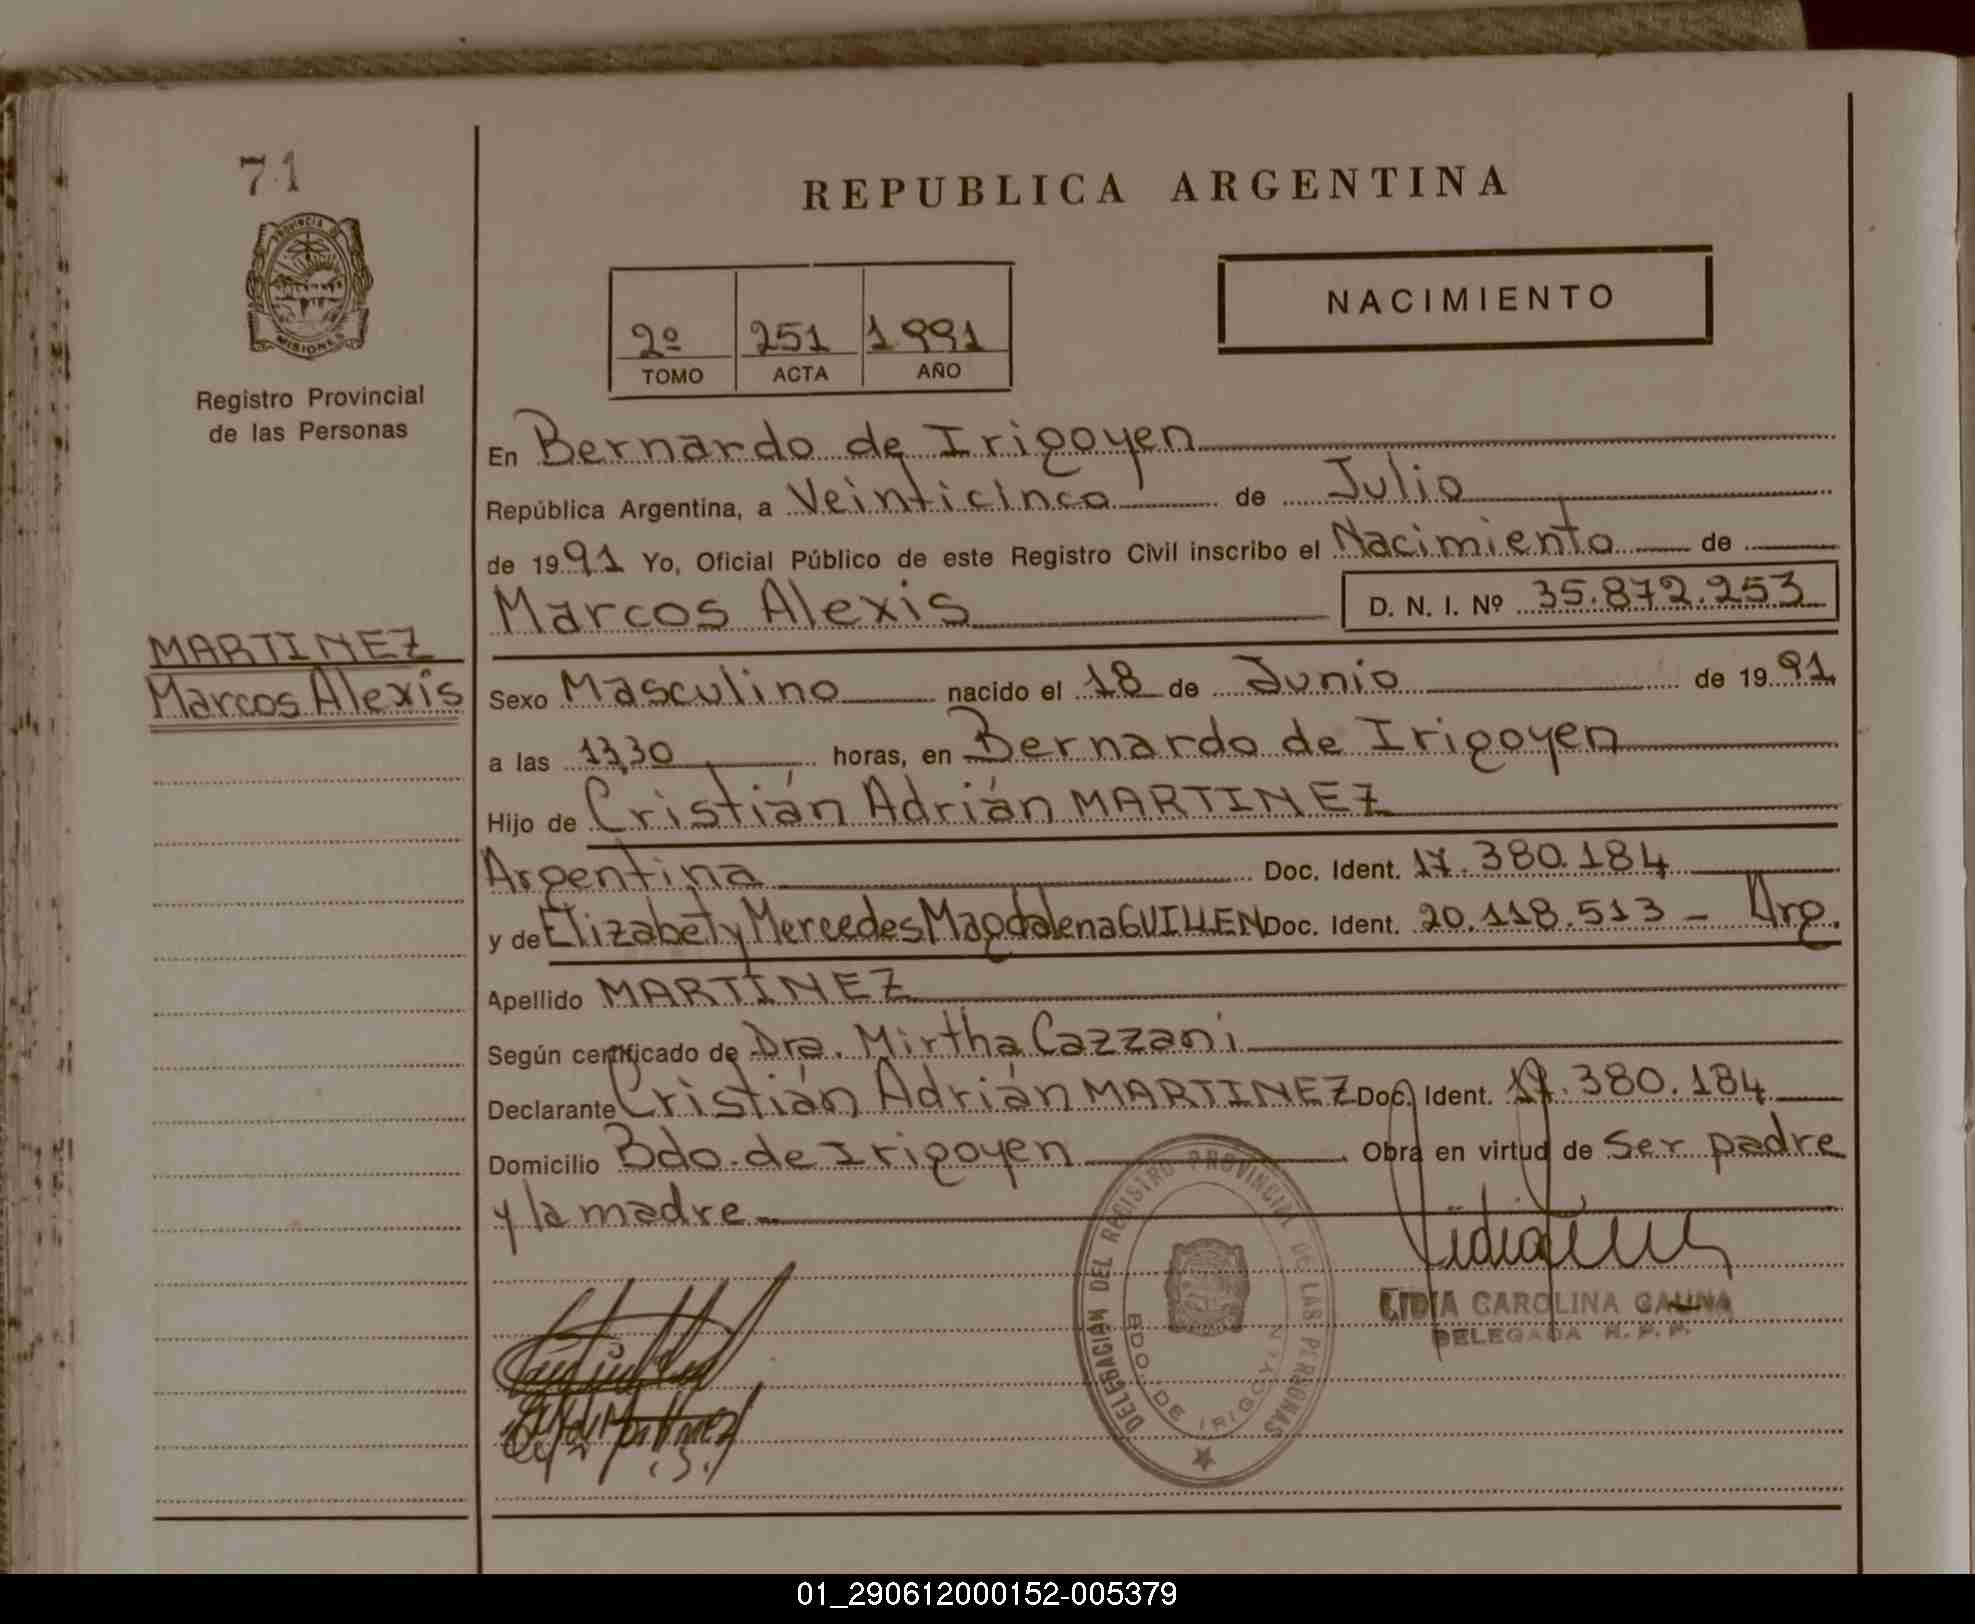 71
PROVINCIA DE
MISIONES
Registro Provincial
de las Personas
MARTINEZ
Marcos Alexis
REPUBLICA ARGENTINA
NACIMIENTO
2º 251 1991
TOMO ACTA AÑO
En Bernardo de Irigoyen
República Argentina, a Veinticinco de Julio
de 1991 Yo, Oficial Público de este Registro Civil inscribo el Nacimiento de
Marcos Alexis D. N. I. Nº 35.872.253
Sexo Masculino nacido el 18 de Junio de 1991
a las 13,30 horas, en Bernardo de Irigoyen
Hijo de Cristián Adrián MARTINEZ
Argentina Doc. Ident. 17.380.184
y de Elizabety Mercedes Magdalena GUILLEN Doc. Ident. 20.118.513 - Arg.
Apellido MARTINEZ
Según certificado de Dra. Mirtha Cazzani
Declarante Cristián Adrián MARTINEZ Doc. Ident. 17.380.184
Domicilio Bdo. de Irigoyen Obra en virtud de Ser padre
y la madre
DELEGACIÓN DEL REGISTRO PROVINCIAL DE LAS PERSONAS
BDO. DE IRIGOYEN
LIDIA CAROLINA GAUNA
DELEGADA R. P. P.
01_290612000152-005379